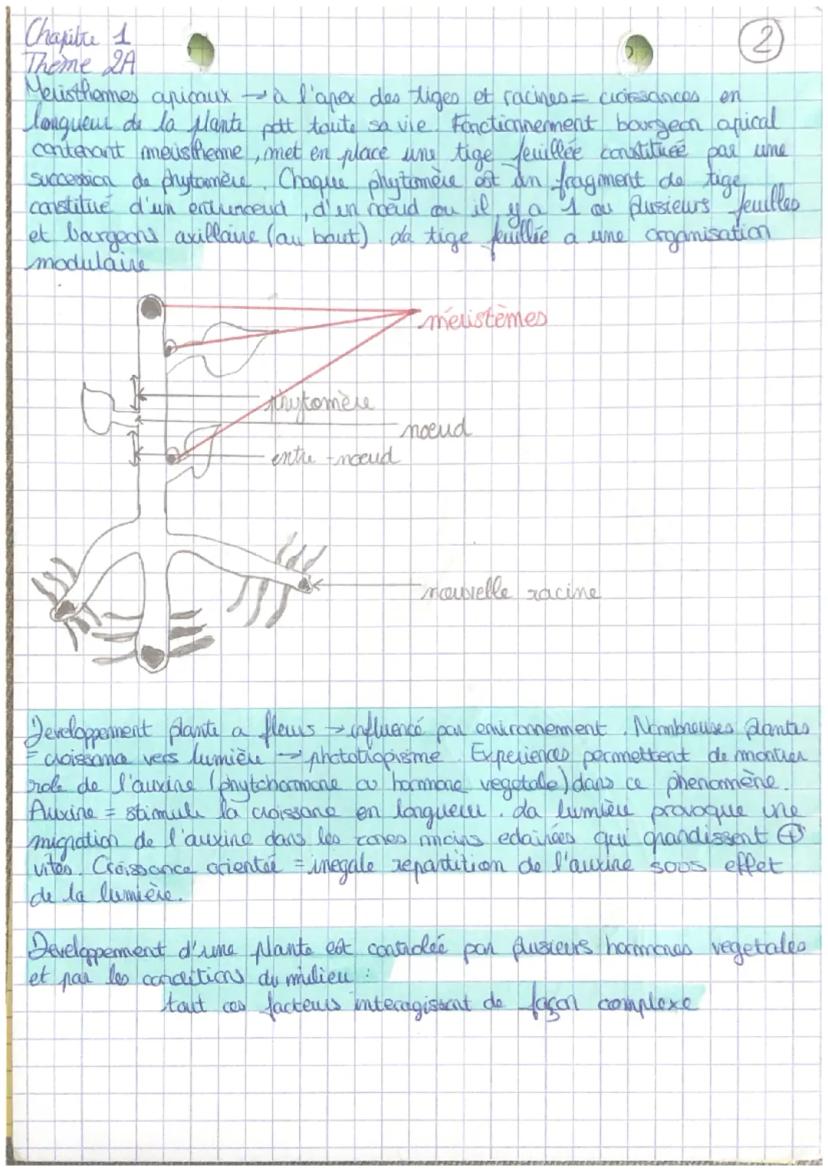 Chapitre 1
2
Thème 2A
Meristhemes apicaux → à l'apex des tiges et racines = croissances en
longueur de la plante pdt toute sa vie. Fonctionnement bourgeon apical
contenant meristheme, met en place une tige feuillée constituée par une
succession de phytomère. Chaque phytomère est un fragment de tige
constitué d'un entrenoeud, d'un noeud ou il y a 1 ou plusieurs feuilles
et bourgeons axillaire (au bout). La tige feuillée a une organisation
modulaire
meristèmes
phytomère
noeud
entre-noeud
nouvelle racine
Developpement plante a fleurs → influencé par environnement. Nombreuses plantes
= croissance vers lumière → phototropisme. Experiences permettent de montrer
role de l'auxine (phytohormone ou hormone vegetale) dans ce phenomène.
Auxine = stimule la croissane en longueur. La lumière provoque une
migration de l'auxine dans les zones moins eclairées qui grandissent ⊕
vites. Croissance orientée = inegale repartition de l'auxine sous effet
de la lumière.
Developpement d'une plante est controlée par plusieurs hormones vegetales
et par les conditions du milieu :
tout ces facteurs interagissent de façon complexe